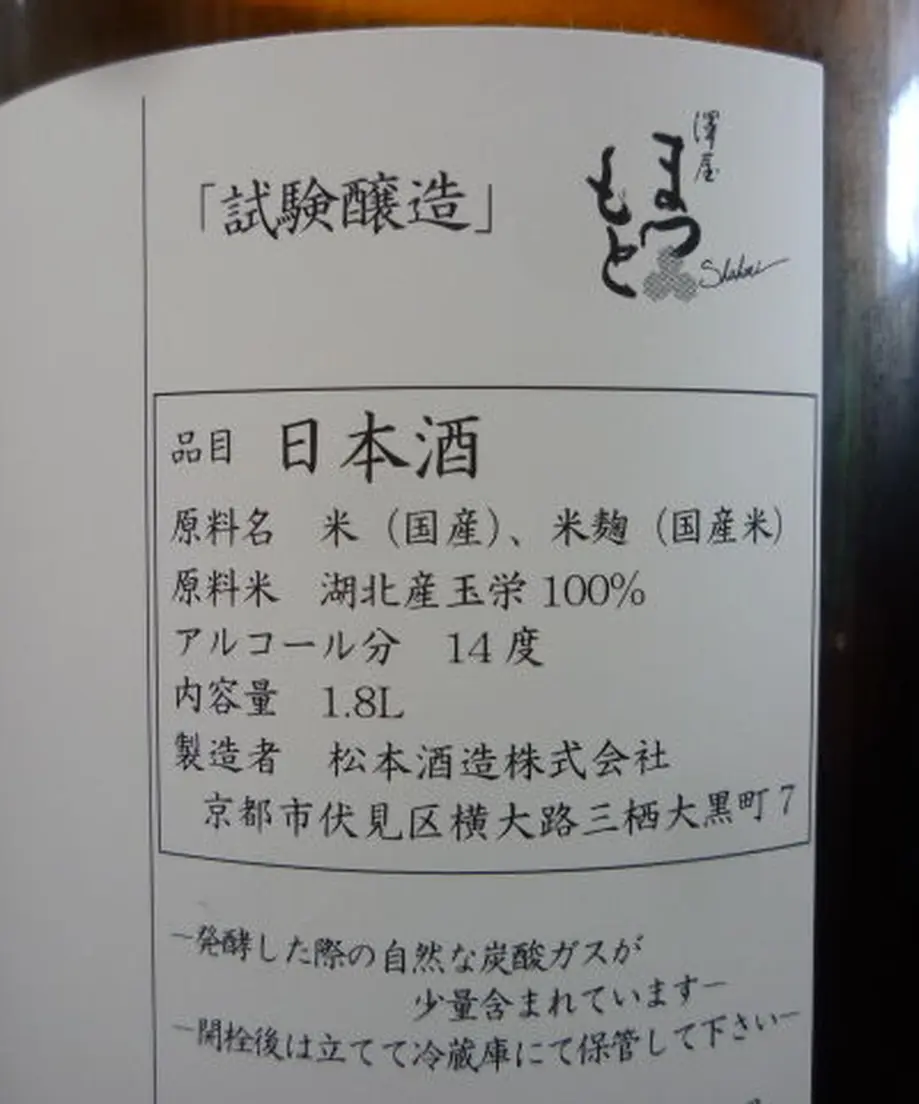 「試験醸造」
澤屋
まつ
もと
Shuhari
品目 日本酒
原料名 米（国産）、米麹（国産米）
原料米 湖北産玉栄100%
アルコール分 14度
内容量 1.8L
製造者 松本酒造株式会社
京都市伏見区横大路三栖大黒町7
−発酵した際の自然な炭酸ガスが
少量含まれています−
−開栓後は立てて冷蔵庫にて保管して下さい−